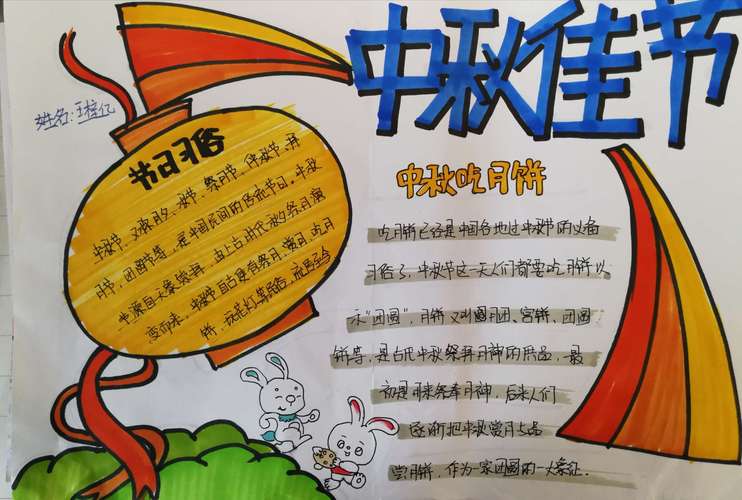 中秋佳节
姓名:王梓亿
节日习俗
中秋节,又称月夕、秋节、祭月节、仲秋节、拜
月节、团圆节等,是中国民间的传统节日。中秋
节源自天象崇拜,由上古时代秋夕祭月演
变而来。中秋节自古便有祭月、赏月、吃月
饼、玩花灯等民俗,流传至今
中秋吃月饼
吃月饼已经是中国各地过中秋节的必备
习俗了,中秋节这一天人们都要吃月饼以
示“团圆”,月饼又叫月团、宫饼、团圆
饼等,是古代中秋祭拜月神的供品,最
初是用来祭奉月神,后来人们
逐渐把中秋赏月与品
尝月饼,作为一家团圆的一大象征.